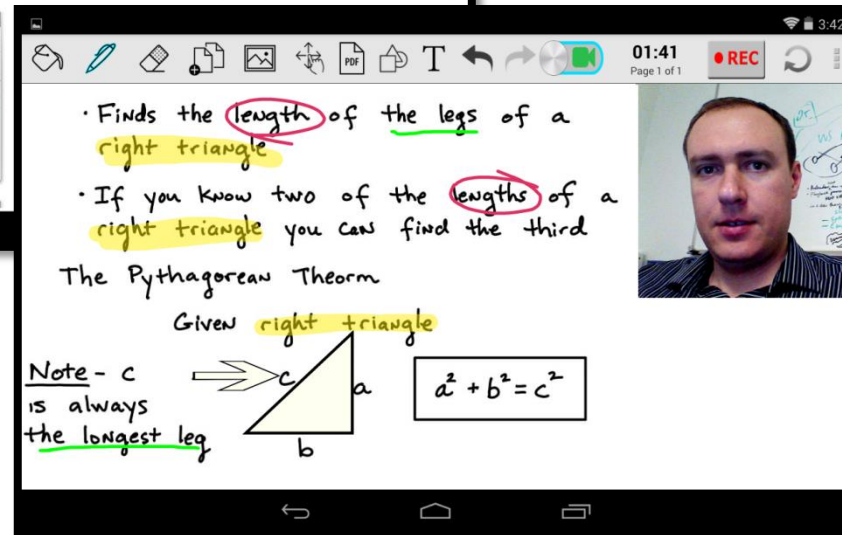 PDF
T
01:41
Page 1 of 1
REC
3:42
· Finds the length of the legs of a
right triangle
· If you know two of the lengths of a
right triangle you can find the third
The Pythagorean Theorm
Given right triangle
Note - c
is always
the longest leg
c
a
b
a² + b² = c²